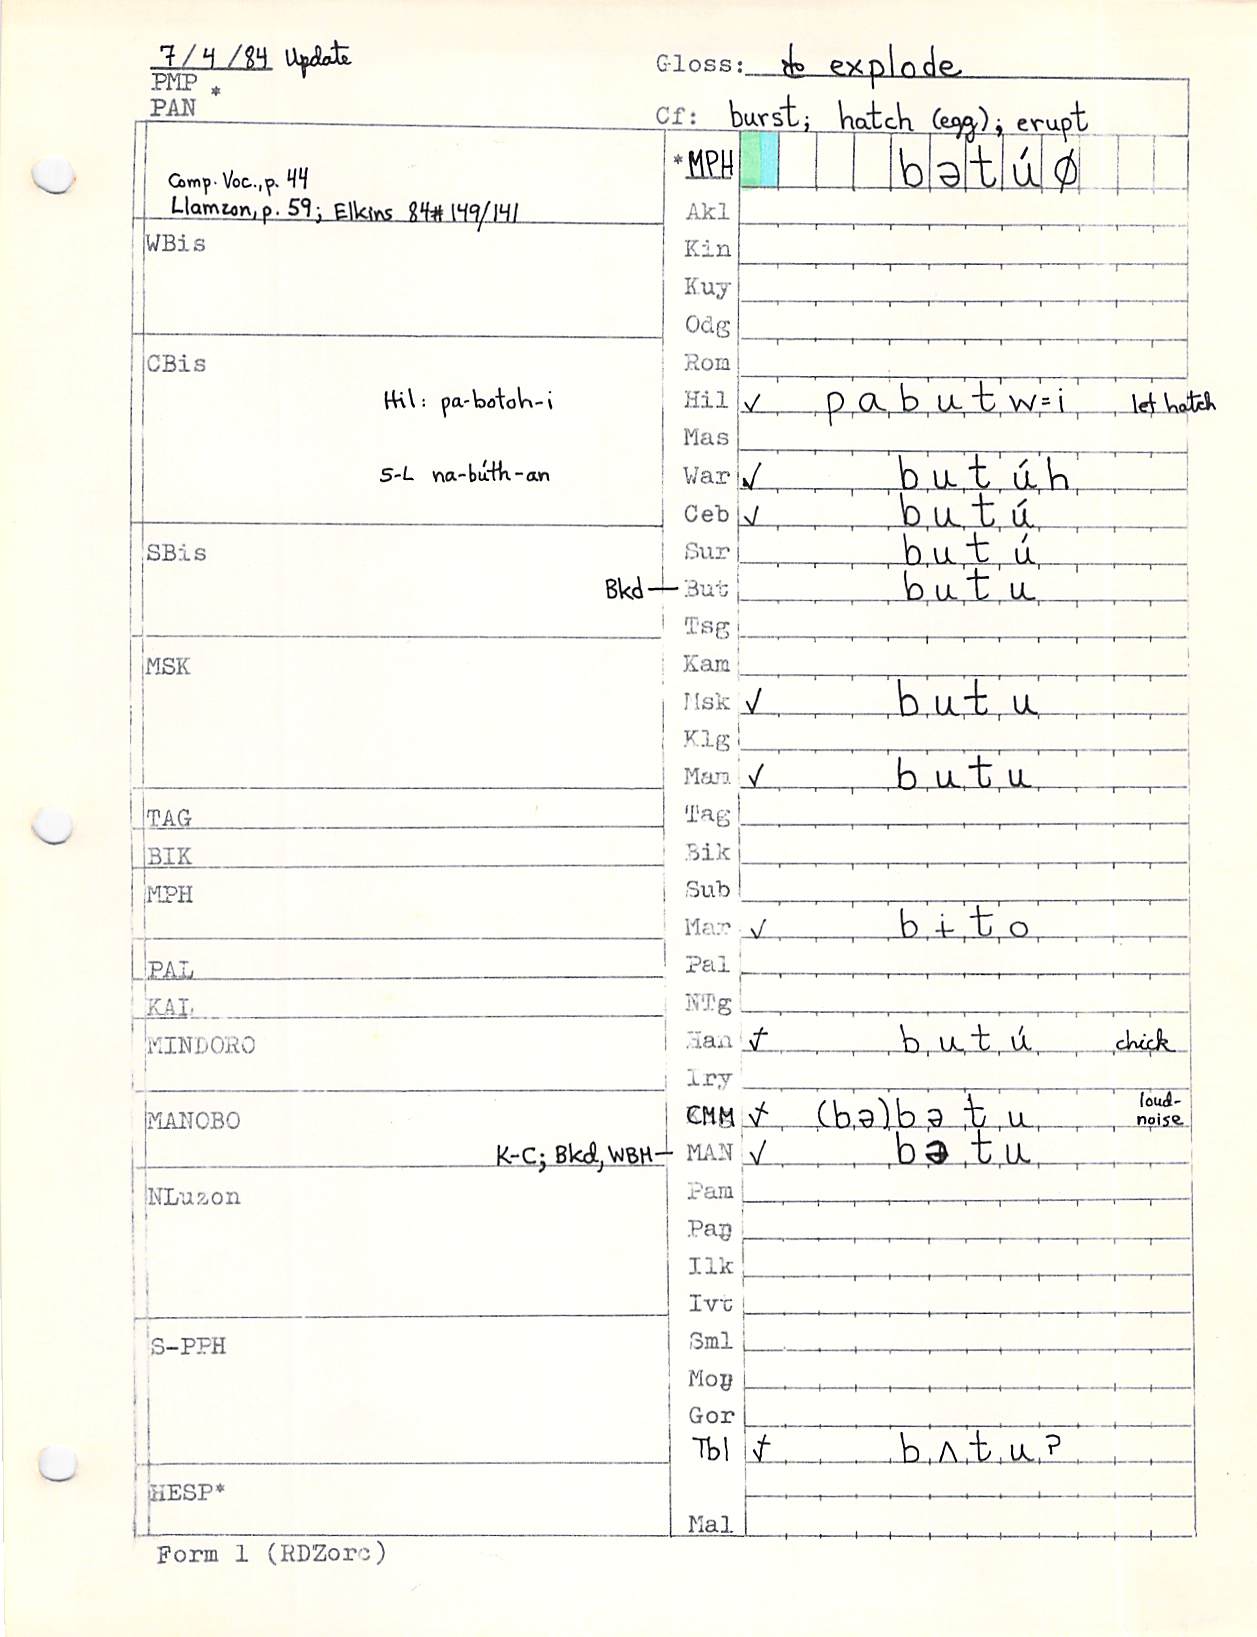 7/4/84 Update
Gloss: to explode
PMP *
PAN
Cf: burst; hatch (egg); erupt
*MPH bətúø
Comp. Voc., p. 44
Llamzon, p. 59; Elkins 84#149/141
Akl
WBis
Kin
Kuy
Odg
CBis
Rom
Hil: pa-botoh-i
Hil ✓ pabutw=i let hatch
Mas
S-L na-búth-an
War ✓ butúh
Ceb ✓ butú
SBis
Sur butú
Bkd — But butu
Tsg
MSK
Kam
Msk ✓ butu
Klg
Man ✓ butu
TAG
Tag
BIK
Bik
MPH
Sub
Mar ✓ bɨto
PAL
Pal
KAL
NTg
MINDORO
Han ✓ butú chick
Iry
MANOBO
CMM ✓ (bə)bətu loud-noise
K-C; Bkd, WBM — MAN ✓ bətu
NLuzon
Pam
Paŋ
Ilk
Ivt
S-PPH
Sml
Moŋ
Gor
Tbl ✓ bʌtu?
HESP*
Mal
Form 1 (RDZorc)